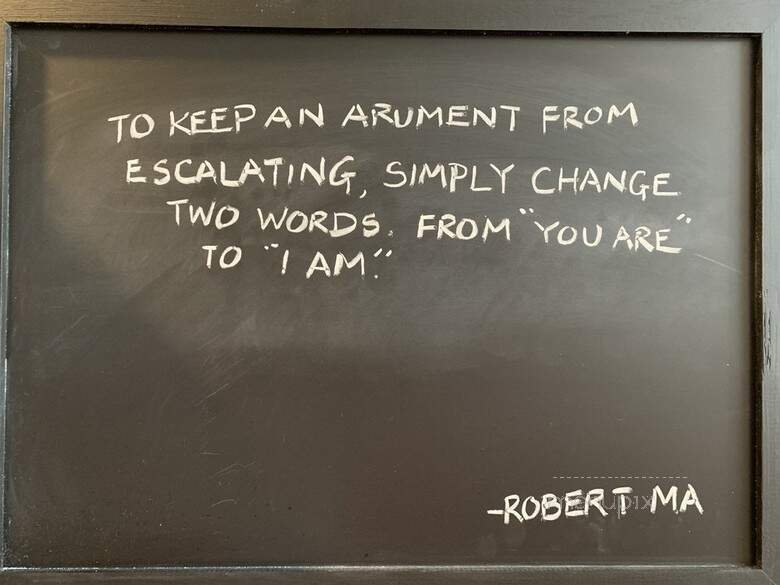 TO KEEP AN ARUMENT FROM
ESCALATING, SIMPLY CHANGE
TWO WORDS. FROM "YOU ARE"
TO "I AM."
-ROBERT MA